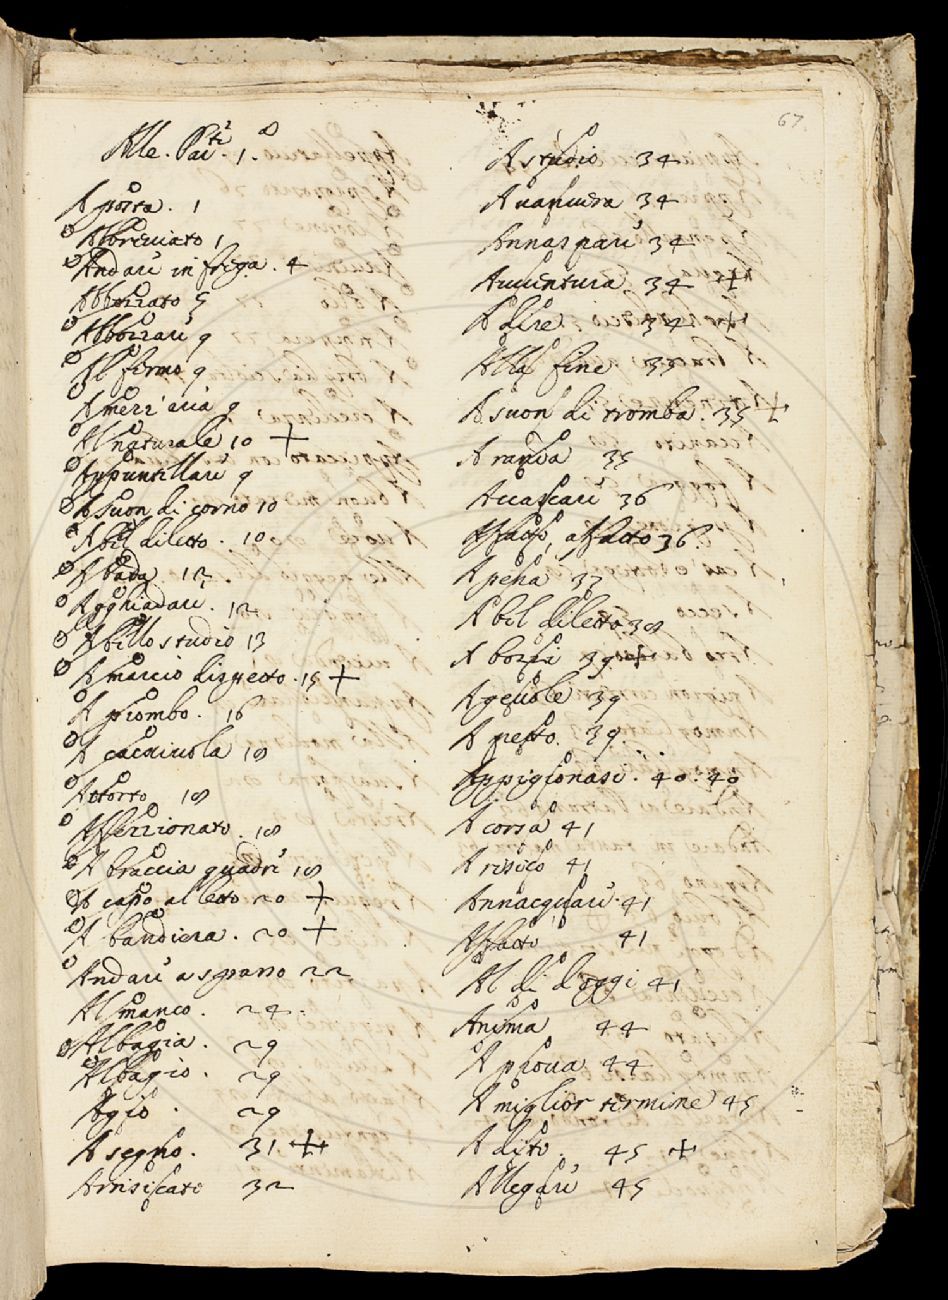 67.
Alle. Par.ti 1.a
A posta. 1
Abbreuiato 1
Andare in frega. 4
Abbozzato 5
Abbozzare 9
Al fermo 9
A mezz'aria 9
Al naturale 10 +
Appuntellare 9
A suon di corno 10
A bel diletto. 10
A bada 12
Agghiadare. 12
A bello studio 13
A marcio dispetto. 15 +
A piombo. 16
A cacaiuola 18
Attorto 18
Affezzionato. 18
A braccia quadre 18
A capo al letto 20 +
A bandiera. 20 +
Andare a sparo 22
Al manco. 24.
Albagia. 29
Albagio. 29
Agio. 29
A segno. 31. +
Arrisicare 32
A studio 34
Annaspare 34
Auuentura. 34 +
A dire 34 +
Alla fine 35
A suon di tromba. 35 +
A randa 35
Accascare 36
Affatto, affatto 36.
A pena 37
A bel diletto 38
A bozzi 39 +
Ageuole 39
A petto. 39.
Appigionasi. 40. 40
A corsa 41
A risico 41
Annacquare. 41
Affatto 41
Al dì d'oggi 41
Anima 44
A proua 44
A miglior termine 45
A dito. 45 +
Allegare 45